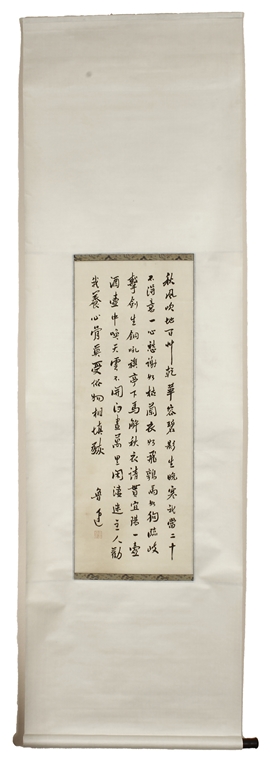 秋風吹地百艸乾華容碧影生晚寒我當二十
不得意一心愁謝如枯蘭衣如飛鶉馬如狗臨岐
擊劍生銅吼旗亭下馬解秋衣請貰宜陽一壺
酒壺中喚天雲不開白晝萬里閒淒迷主人勸
我養心骨莫受俗物相填豗
魯迅